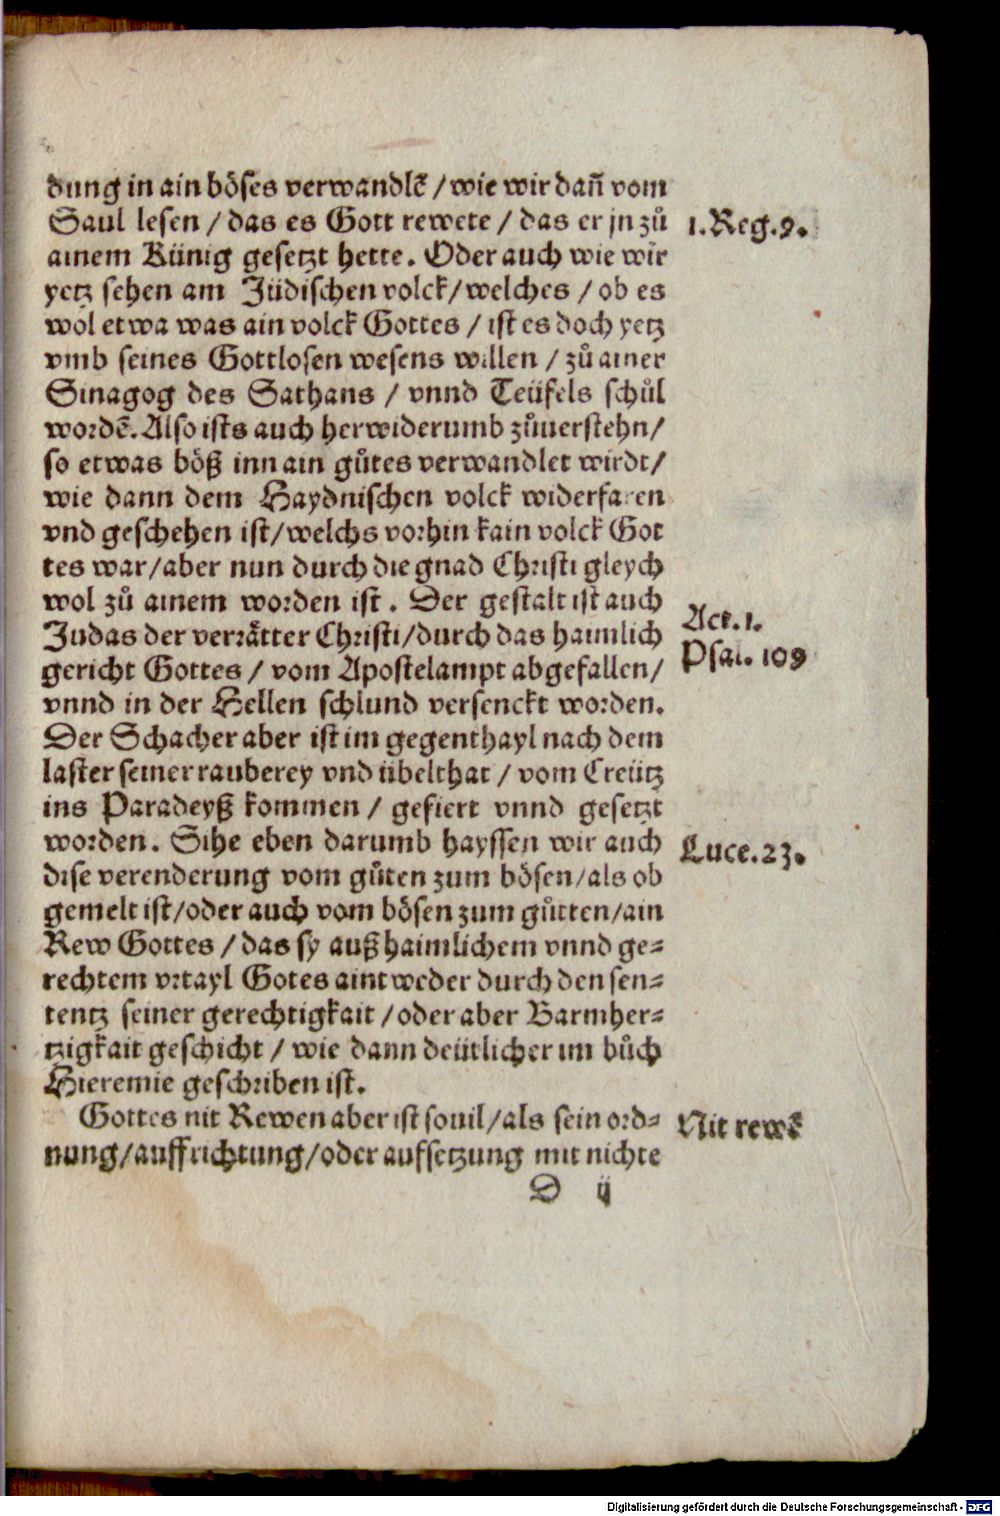 dung in ain böses verwandlẽ / wie wir dañ vom
Saul lesen / das es Gott rewete / das er jn zů
ainem Künig gesetzt hette. Oder auch wie wir
yetz sehen am Jüdischen volck / welches / ob es
wol etwa was ain volck Gottes / ist es doch yetz
vmb seines Gottlosen wesens willen / zů ainer
Sinagog des Sathans / vnnd Teüfels schůl
wordẽ. Also ists auch herwiderumb zůuerstehn /
so etwas böß inn ain gůtes verwandlet wirdt /
wie dann dem Haydnischen volck widerfaren
vnd geschehen ist / welchs vorhin kain volck Got
tes war / aber nun durch die gnad Christi gleych
wol zů ainem worden ist. Der gestalt ist auch
Judas der verrätter Christi / durch das haimlich
gericht Gottes / vom Apostelampt abgefallen /
vnnd in der Hellen schlund versenckt worden.
Der Schacher aber ist im gegenthayl nach dem
laster seiner rauberey vnd übelthat / vom Creütz
ins Paradeyß kommen / gefiert vnnd gesetzt
worden. Sihe eben darumb hayssen wir auch
dise verenderung vom gůten zum bösen / als ob
gemelt ist / oder auch vom bösen zum gůtten / ain
Rew Gottes / das sy auß haimlichem vnnd ge-
rechtem vrtayl Gotes aintweder durch den sen-
tentz seiner gerechtigkait / oder aber Barmher-
tzigkait geschicht / wie dann deütlicher im bůch
Hieremie geschriben ist.
Gottes nit Rewen aber ist souil / als sein ord-
nung / auffrichtung / oder aufsetzung mit nichte
D ij
1. Reg. 9.
Act. 1.
Psal. 109
Luce. 23.
Nit rewẽ
Digitalisierung gefördert durch die Deutsche Forschungsgemeinschaft - DFG